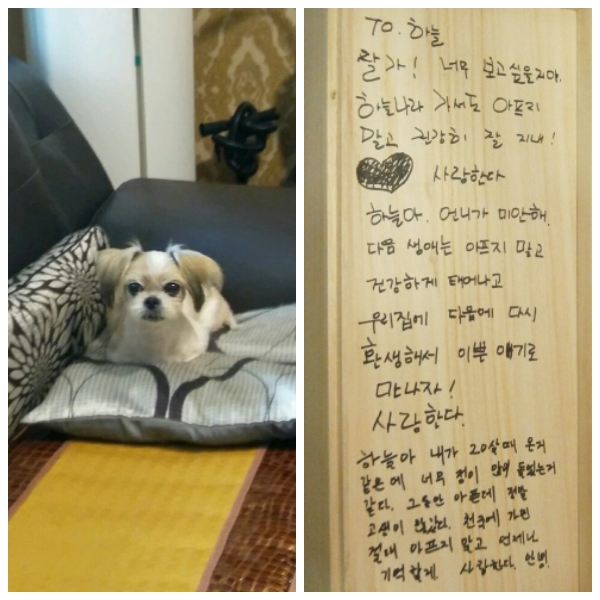 TO. 하늘
잘가! 너무 보고싶을꺼야.
하늘나라 가서도 아프지
말고 건강히 잘 지내!
사랑한다
하늘아. 언니가 미안해.
다음 생애는 아프지 말고
건강하게 태어나고
우리집에 다음에 다시
환생해서 이쁜 애기로
만나자!
사랑한다.
하늘아 내가 20살때 온거
같은데 너무 정이 많이 들었는거
같다. 그동안 아픈데 정말
고생이 많았다. 천국에 가면
절대 아프지 말고 언제나
기억할게. 사랑한다. 안녕.